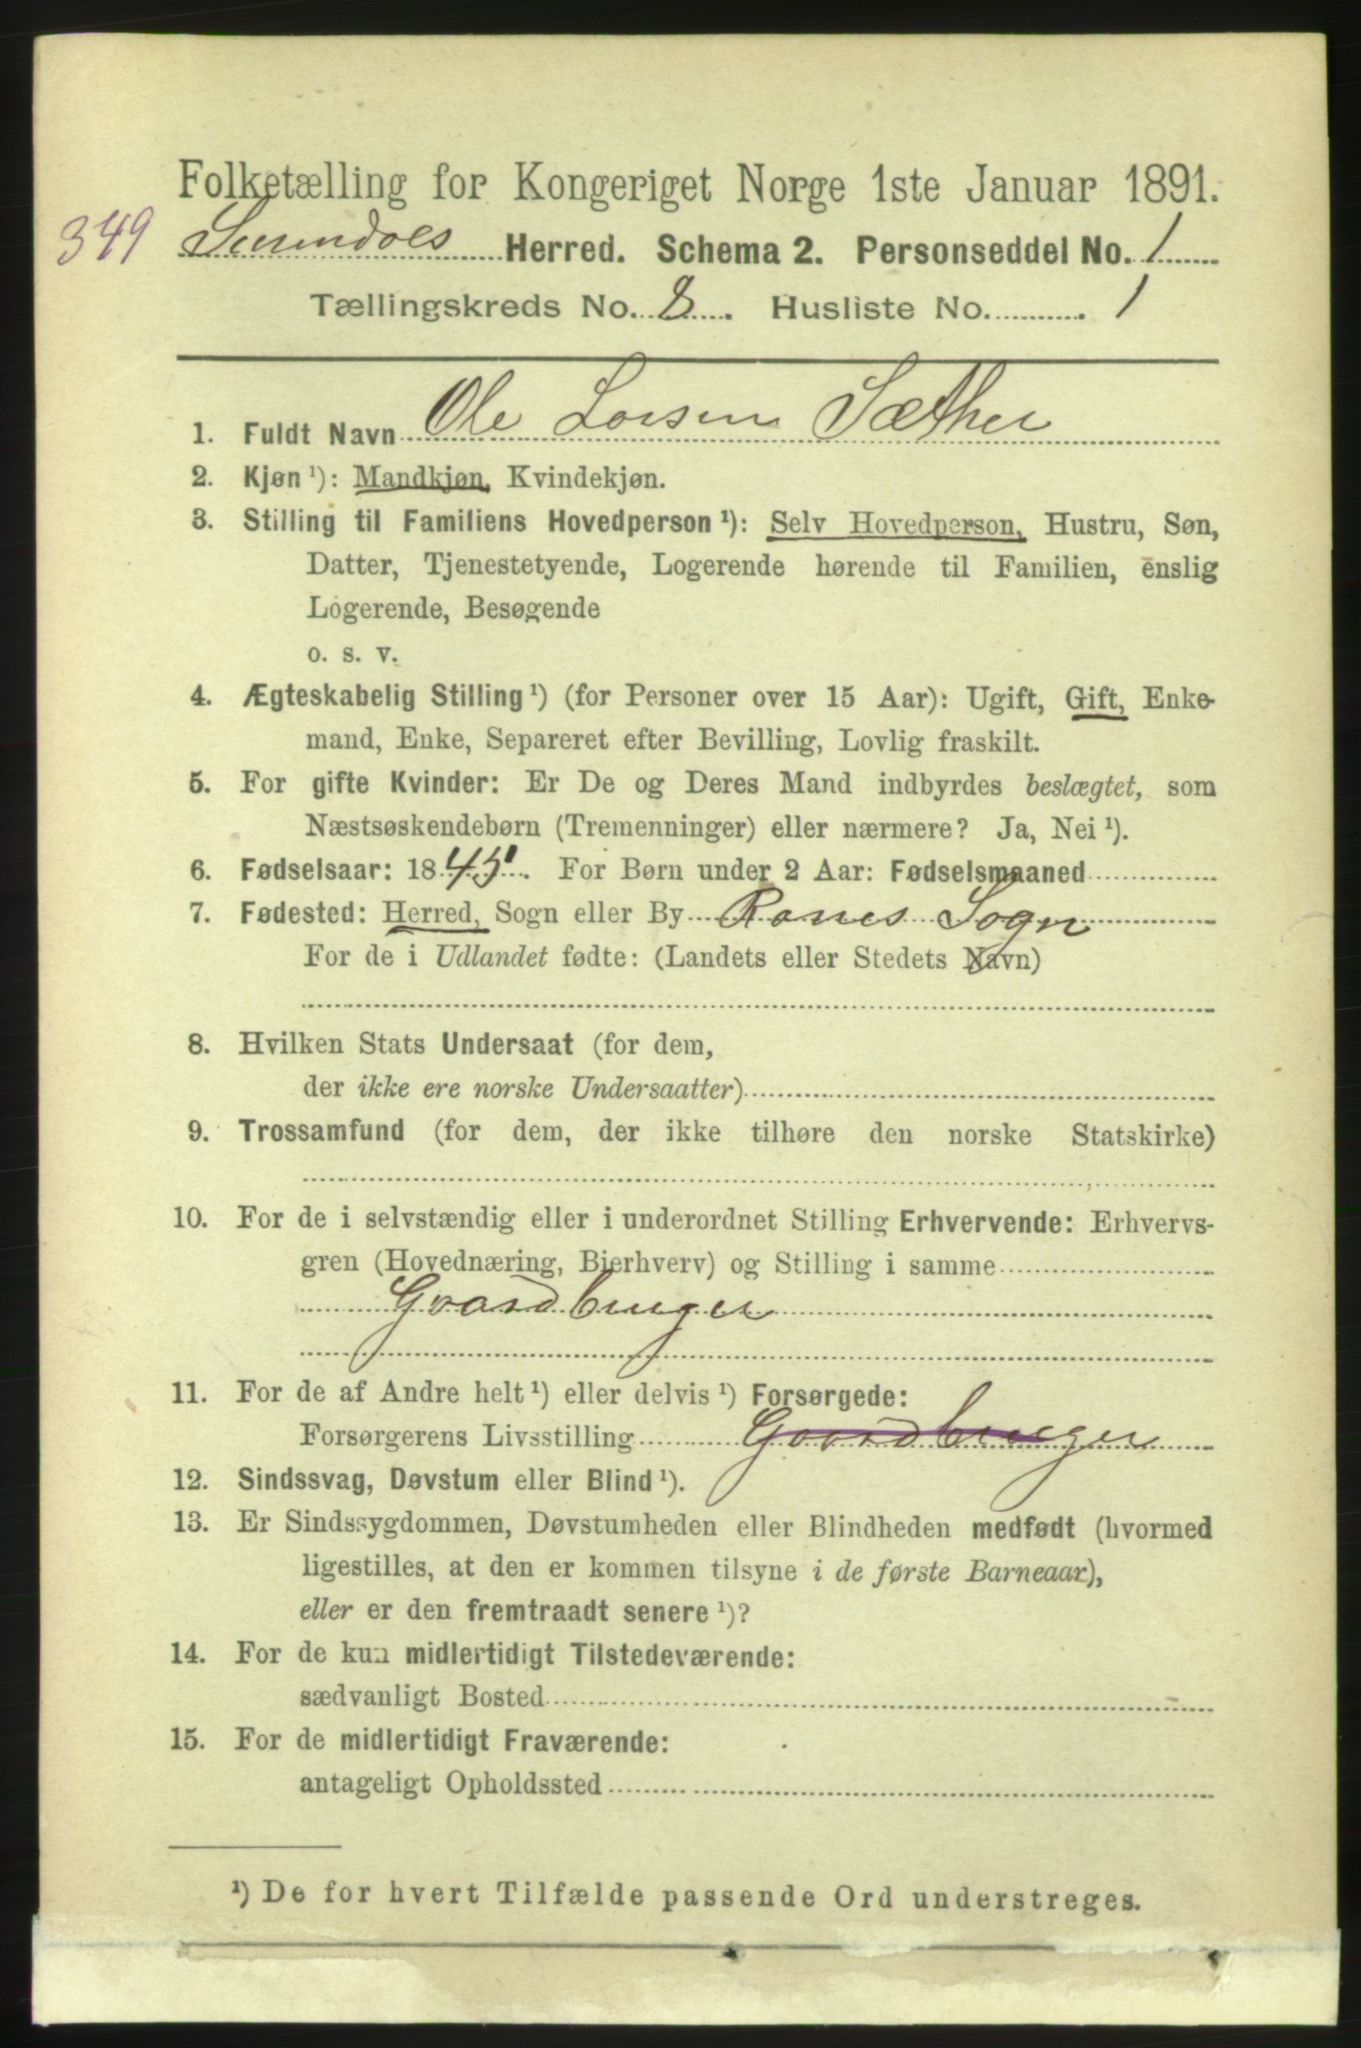 Folketælling for Kongeriget Norge 1ste Januar 1891.
349 Surendals Herred. Schema 2. Personseddel No. 1
Tællingskreds No. 8. Husliste No. 1
1. Fuldt Navn Ole Larsen Sæther
2. Kjøn ¹): Mandkjøn, Kvindekjøn.
3. Stilling til Familiens Hovedperson ¹): Selv Hovedperson, Hustru, Søn,
Datter, Tjenestetyende, Logerende hørende til Familien, enslig
Logerende, Besøgende
o. s. v.
4. Ægteskabelig Stilling ¹) (for Personer over 15 Aar): Ugift, Gift, Enke-
mand, Enke, Separeret efter Bevilling, Lovlig fraskilt.
5. For gifte Kvinder: Er De og Deres Mand indbyrdes beslægtet, som
Næstsøskendebørn (Tremenninger) eller nærmere? Ja, Nei ¹).
6. Fødselsaar: 1845. For Børn under 2 Aar: Fødselsmaaned
7. Fødested: Herred, Sogn eller By Ranes Sogn
For de i Udlandet fødte: (Landets eller Stedets Navn)
8. Hvilken Stats Undersaat (for dem,
der ikke ere norske Undersaatter)
9. Trossamfund (for dem, der ikke tilhøre den norske Statskirke)
10. For de i selvstændig eller i underordnet Stilling Erhvervende: Erhvervs-
gren (Hovednæring, Bierhverv) og Stilling i samme
Gaardbruger
11. For de af Andre helt ¹) eller delvis ¹) Forsørgede:
Forsørgerens Livsstilling Gaardbruger
12. Sindssvag, Døvstum eller Blind ¹).
13. Er Sindssygdommen, Døvstumheden eller Blindheden medfødt (hvormed
ligestilles, at den er kommen tilsyne i de første Barneaar),
eller er den fremtraadt senere ¹)?
14. For de kun midlertidigt Tilstedeværende:
sædvanligt Bosted
15. For de midlertidigt Fraværende:
antageligt Opholdssted
¹) De for hvert Tilfælde passende Ord understreges.